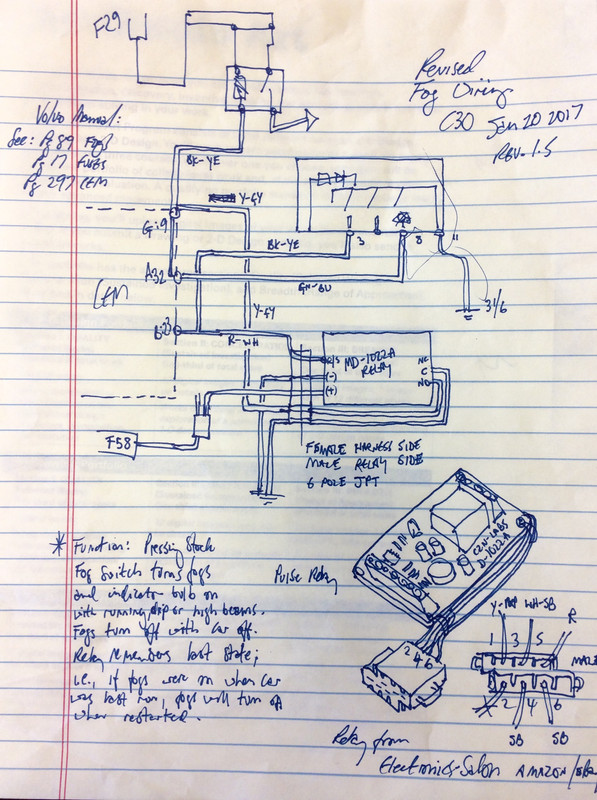 F29
Revised
Fog Wiring
C30 Jan 20 2017
Rev. 1.5
Volvo Manual:
See: Pg 89 Fogs
Pg 17 Fuses
Pg 297 CEM
BK-YE
Y-GY
G:9
BK-YE
3
8
11
A32
GN-BU
31/6
CEM
Y-GY
R-WH
MD-1022A
RELAY
(-)
(+)
NC
C
NO
F58
FEMALE HARNESS SIDE
MALE RELAY SIDE
6 POLE JPT
* Function: Pressing Stock
Fog switch turns fogs
and indicator bulb on
with running dip or high beams.
Fogs turn off with car off.
Relay remembers last state;
i.e., if fogs were on when car
was last run, fogs will turn on
when restarted.
Pulse Relay
D-1022A
2 4 6
WH-SB
R
1 3 5
MALE
2 4 6
SB SB
Relay from
Electronics-Salon AMAZON/